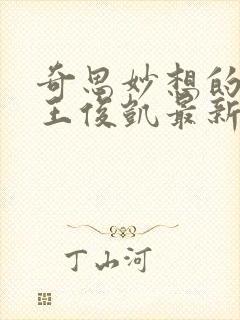 奇思妙想的
王俊凯最新
丁山河